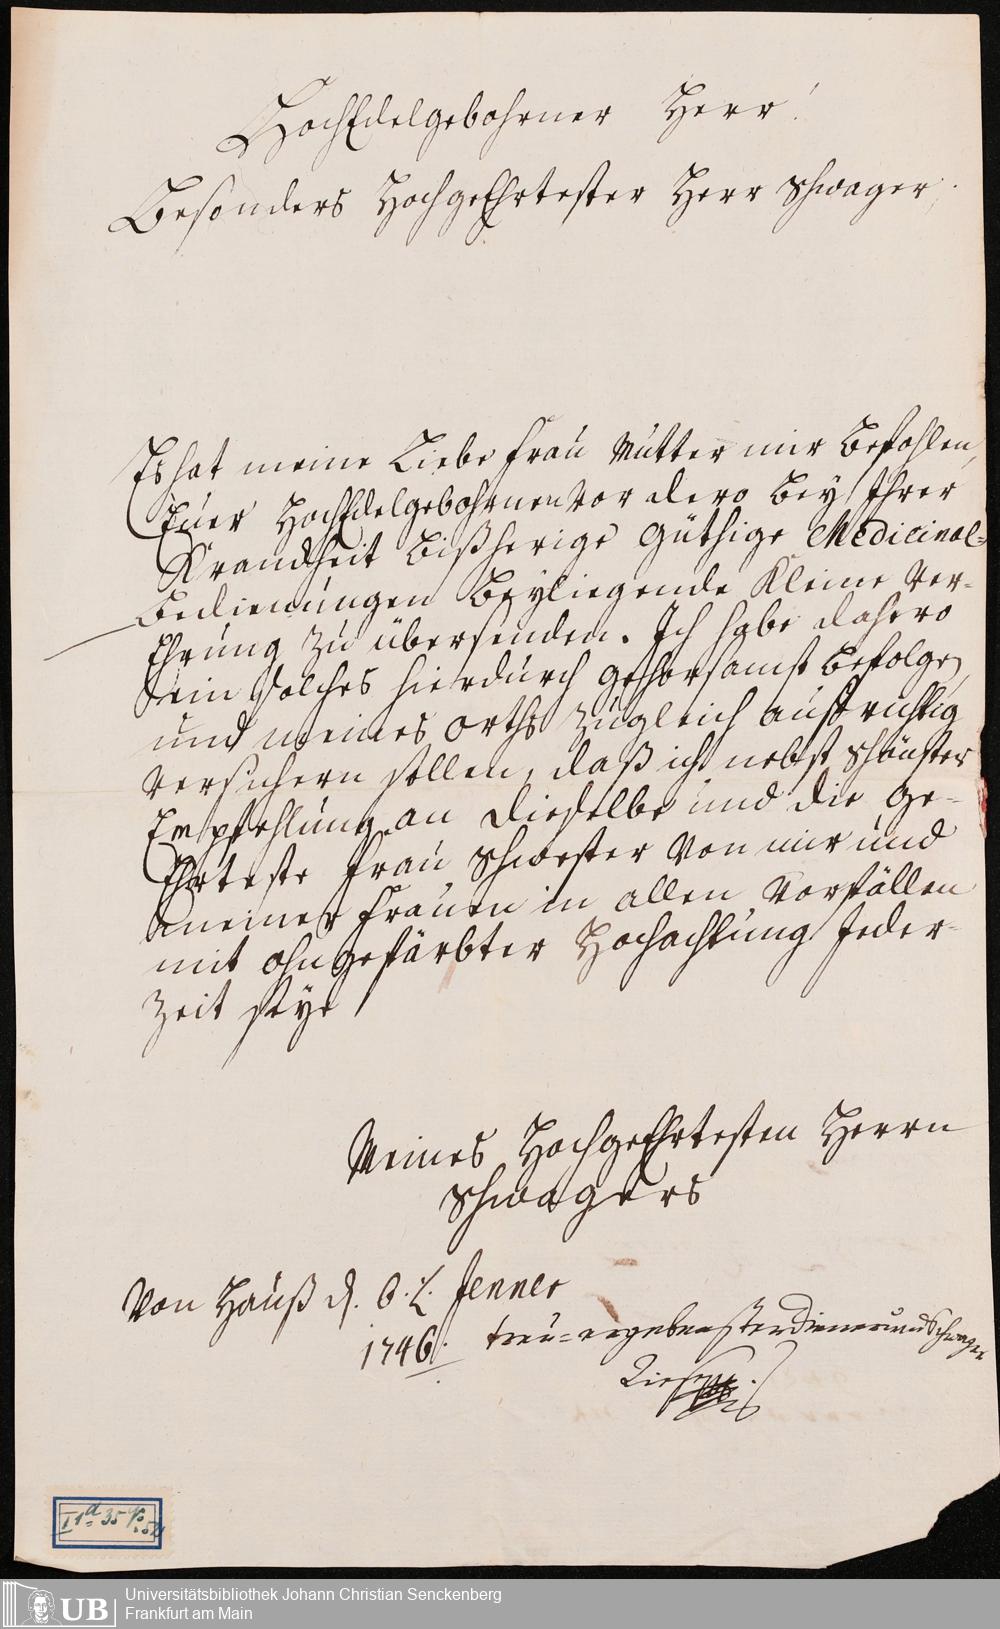 HochEdelgebohrner Herr!
Besonders HochgeEhrtester Herr Schwager.
Es hat meine Liebe Frau Mutter mir befohlen,
Euer HochEdelgebohrnen vor dero bey Ihrer
Kranckheit bißherige Güthige Medicinal-
bedienungen beyliegende Kleine Ver-
Ehrung zu übersenden. Ich habe dahero
ein solches hierdurch gehorsamst befolgen,
und meines orths zugleich auffrichtig
versichern sollen, daß ich nebst schönster
Empfehlung an dieselbe und die ge-
Ehrteste Frau Schwester von mir und
meiner Frauen in allen Vorfällen
mit ohngefärbter Hochachtung Jeder-
Zeit seye
Meines HochgeEhrtesten Herrn
Schwagers
Von Hauß d. 6. t. Jenner
1746. treu-ergebenster Diener und Schwager
I 1 d 35
Universitätsbibliothek Johann Christian Senckenberg
Frankfurt am Main
UB